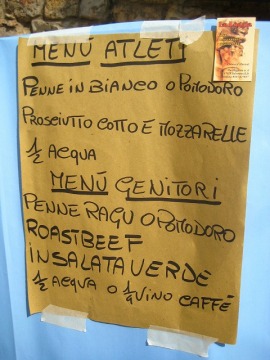 MENÚ ATLETI
PENNE IN BIANCO O POMODORO
PROSCIUTTO COTTO E MOZZARELLE
1/2 ACQUA
MENÚ GENITORI
PENNE RAGU O POMODORO
ROASTBEEF
INSALATA VERDE
1/2 ACQUA O 1/4 VINO CAFFÉ